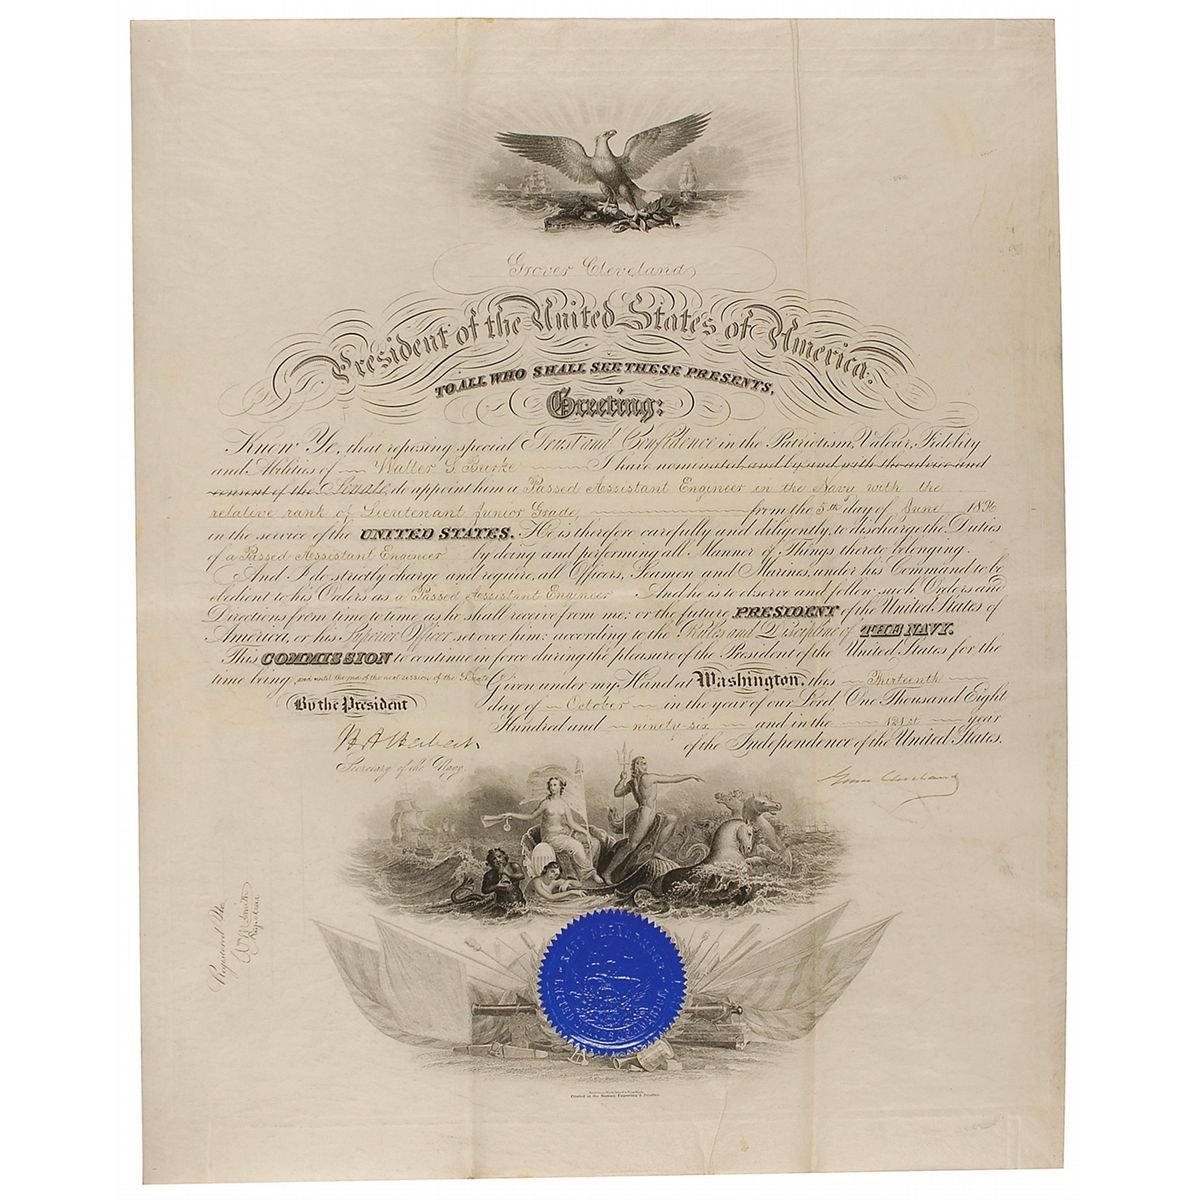 Grover Cleveland,
President of the United States of America.
TO ALL WHO SHALL SEE THESE PRESENTS,
Greeting:
Know Ye, that reposing special Trust and Confidence in the Patriotism, Valour, Fidelity
and Abilities of Walter S. Burke I have nominated and by and with the advice and
consent of the Senate, do appoint him a Passed Assistant Engineer in the Navy with the
relative rank of Lieutenant Junior Grade, from the 5th day of June 1896
in the service of the UNITED STATES. He is therefore carefully and diligently to discharge the Duties
of a Passed Assistant Engineer by doing and performing all Manner of Things thereto belonging.
And I do strictly charge and require, all Officers, Seamen and Marines, under his Command to be
obedient to his Orders as a Passed Assistant Engineer And he is to observe and follow such Orders and
Directions from time to time as he shall receive from me; or the future PRESIDENT of the United States of
America, or his Superior Officer set over him; according to the Rules and Discipline of THE NAVY.
This COMMISSION to continue in force during the pleasure of the President of the United States for the
time being, and until the end of the next session of the Senate
Given under my Hand at Washington, this Thirteenth
day of October in the year of our Lord One Thousand Eight
Hundred and ninety-six and in the 121st year
of the Independence of the United States.
By the President
H A Herbert.
Secretary of the Navy.
Grover Cleveland
Registered No
Smith
Registrar
NAVY DEPARTMENT
UNITED STATES OF AMERICA
Printed at the Bureau, Engraving & Printing.